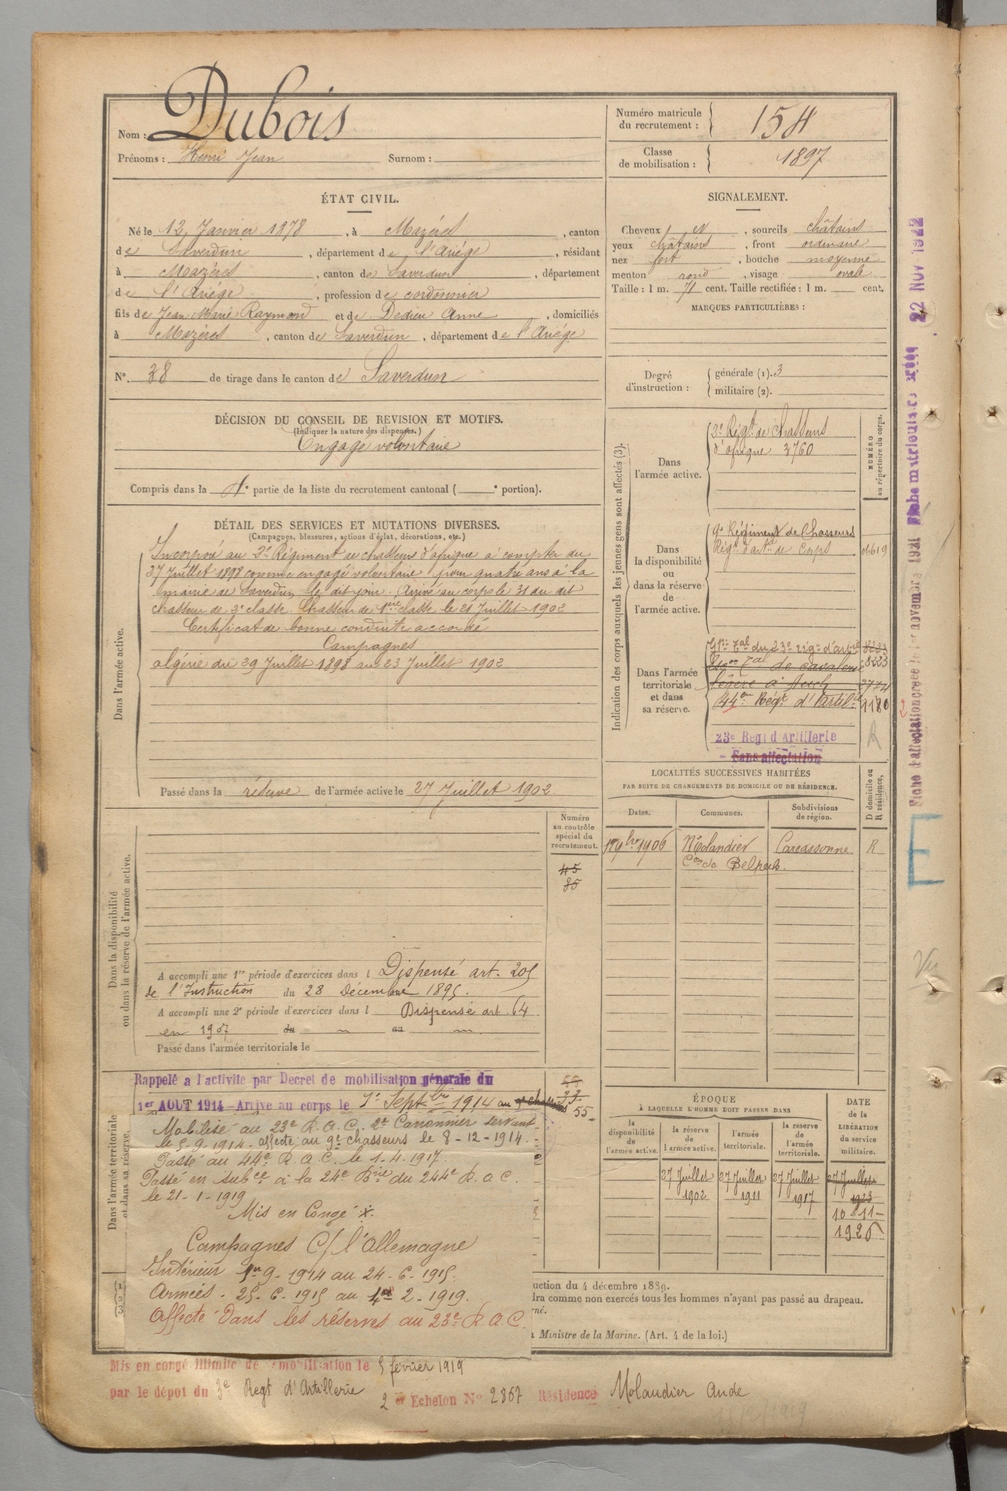 Nom : Dubois
Prénoms : Henri Jean Surnom :
Numéro matricule du recrutement : 1511
Classe de mobilisation : 1897
ÉTAT CIVIL.
Né le 12 Janvier 1878, à Mazères, canton
de Saverdun, département de l'Ariège, résidant
à Mazères, canton de Saverdun, département
de l'Ariège, profession de cordonnier
fils de Jean Marie Raymond et de Dedieu Anne, domiciliés
à Mazères, canton de Saverdun, département de l'Ariège
N° 38 de tirage dans le canton de Saverdun
SIGNALEMENT.
Cheveux et, sourcils châtains
yeux châtains, front ordinaire
nez fort, bouche moyenne
menton rond, visage ovale
Taille : 1 m. 71 cent. Taille rectifiée : 1 m. cent.
MARQUES PARTICULIÈRES :
Degré d'instruction : générale (1). 3
militaire (2).
DÉCISION DU CONSEIL DE REVISION ET MOTIFS.
(Indiquer la nature des dispenses.)
Engagé volontaire
Compris dans la 1e partie de la liste du recrutement cantonal ( e portion).
DÉTAIL DES SERVICES ET MUTATIONS DIVERSES.
(Campagnes, blessures, actions d'éclat, décorations, etc.)
Dans l'armée active.
Incorporé au 2e Régiment de chasseurs d'afrique à compter du
27 Juillet 1898 comme engagé volontaire pour quatre ans à la
mairie de Saverdun le dit jour. Arrivé au corps le 31 du dit
chasseur de 2e classe. Chasseur de 1ère classe le 21 Juillet 1902
Certificat de bonne conduite accordé
Campagnes
algérie du 29 Juillet 1898 au 23 Juillet 1902
Passé dans la réserve de l'armée active le 27 Juillet 1902
Indication des corps auxquels les jeunes gens sont affectés (3).
NUMÉRO au répertoire du corps.
Dans l'armée active.
2e Régt de Chasseurs
d'afrique 3760
Dans la disponibilité ou dans la réserve de l'armée active.
9e Régiment de Chasseurs
Dans l'armée territoriale et dans sa réserve.
44e Régt d'Artill
1180
23e Regt d'Artillerie
Sans affectation
R
LOCALITÉS SUCCESSIVES HABITÉES
PAR SUITE DE CHANGEMENTS DE DOMICILE OU DE RÉSIDENCE.
D domicile ou R résidence.
Dates. Communes. Subdivisions de région.
1906 Molandier Carcassonne R
Con de Belpech
Dans la disponibilité ou dans la réserve de l'armée active.
Numéro au contrôle spécial du recrutement.
45
85
A accompli une 1re période d'exercices dans l Dispensé art. 205
de l'Instruction du 28 Décembre 1895.
A accompli une 2e période d'exercices dans l Dispensé art. 64
en 1907 du au
Passé dans l'armée territoriale le
Dans l'armée territoriale et dans sa réserve.
Rappelé a l'activité par Decret de mobilisation générale du
1er AOUT 1914 - Arrivé au corps le 1er Septbre 1914 au
55
Mobilisé au 23e R.A.C. 2e Canonnier servant
le 5-9-1914. affecté au 9e chasseurs le 8-12-1914.
Passé au 44e R.A.C. le 1-4-1917.
Passé en subce à la 24e Bie du 244e R.A.C.
le 21-1-1919
Mis en Congé
Campagnes C/ l'allemagne
Intérieur 9-1914 au 24-6-1915.
Armées - 25-6-1915 au 2-1919.
Affecté dans les réserves au 23e R.A.C.
ÉPOQUE
À LAQUELLE L'HOMME DOIT PASSER DANS
la disponibilité de l'armée active. la réserve de l'armée active. l'armée territoriale. la réserve de l'armée territoriale.
DATE de la LIBÉRATION du service militaire.
27 Juillet 1902 27 Juillet 1911 27 Juillet 1917 27 Juillet 1923
10-11-1926
uction du 4 décembre 1889.
dra comme non exercés tous les hommes n'ayant pas passé au drapeau.
Ministre de la Marine. (Art. 4 de la loi.)
Mis en congé illimité de démobilisation le 5 février 1919
par le dépôt du 3e Regt d'Artillerie
2 er Echelon N° 2867 Résidence Molandier Aude
Fiche d'affectation créée le 1er novembre 1921
Fiche matriculaire créée 22 NOV 1922
Vu